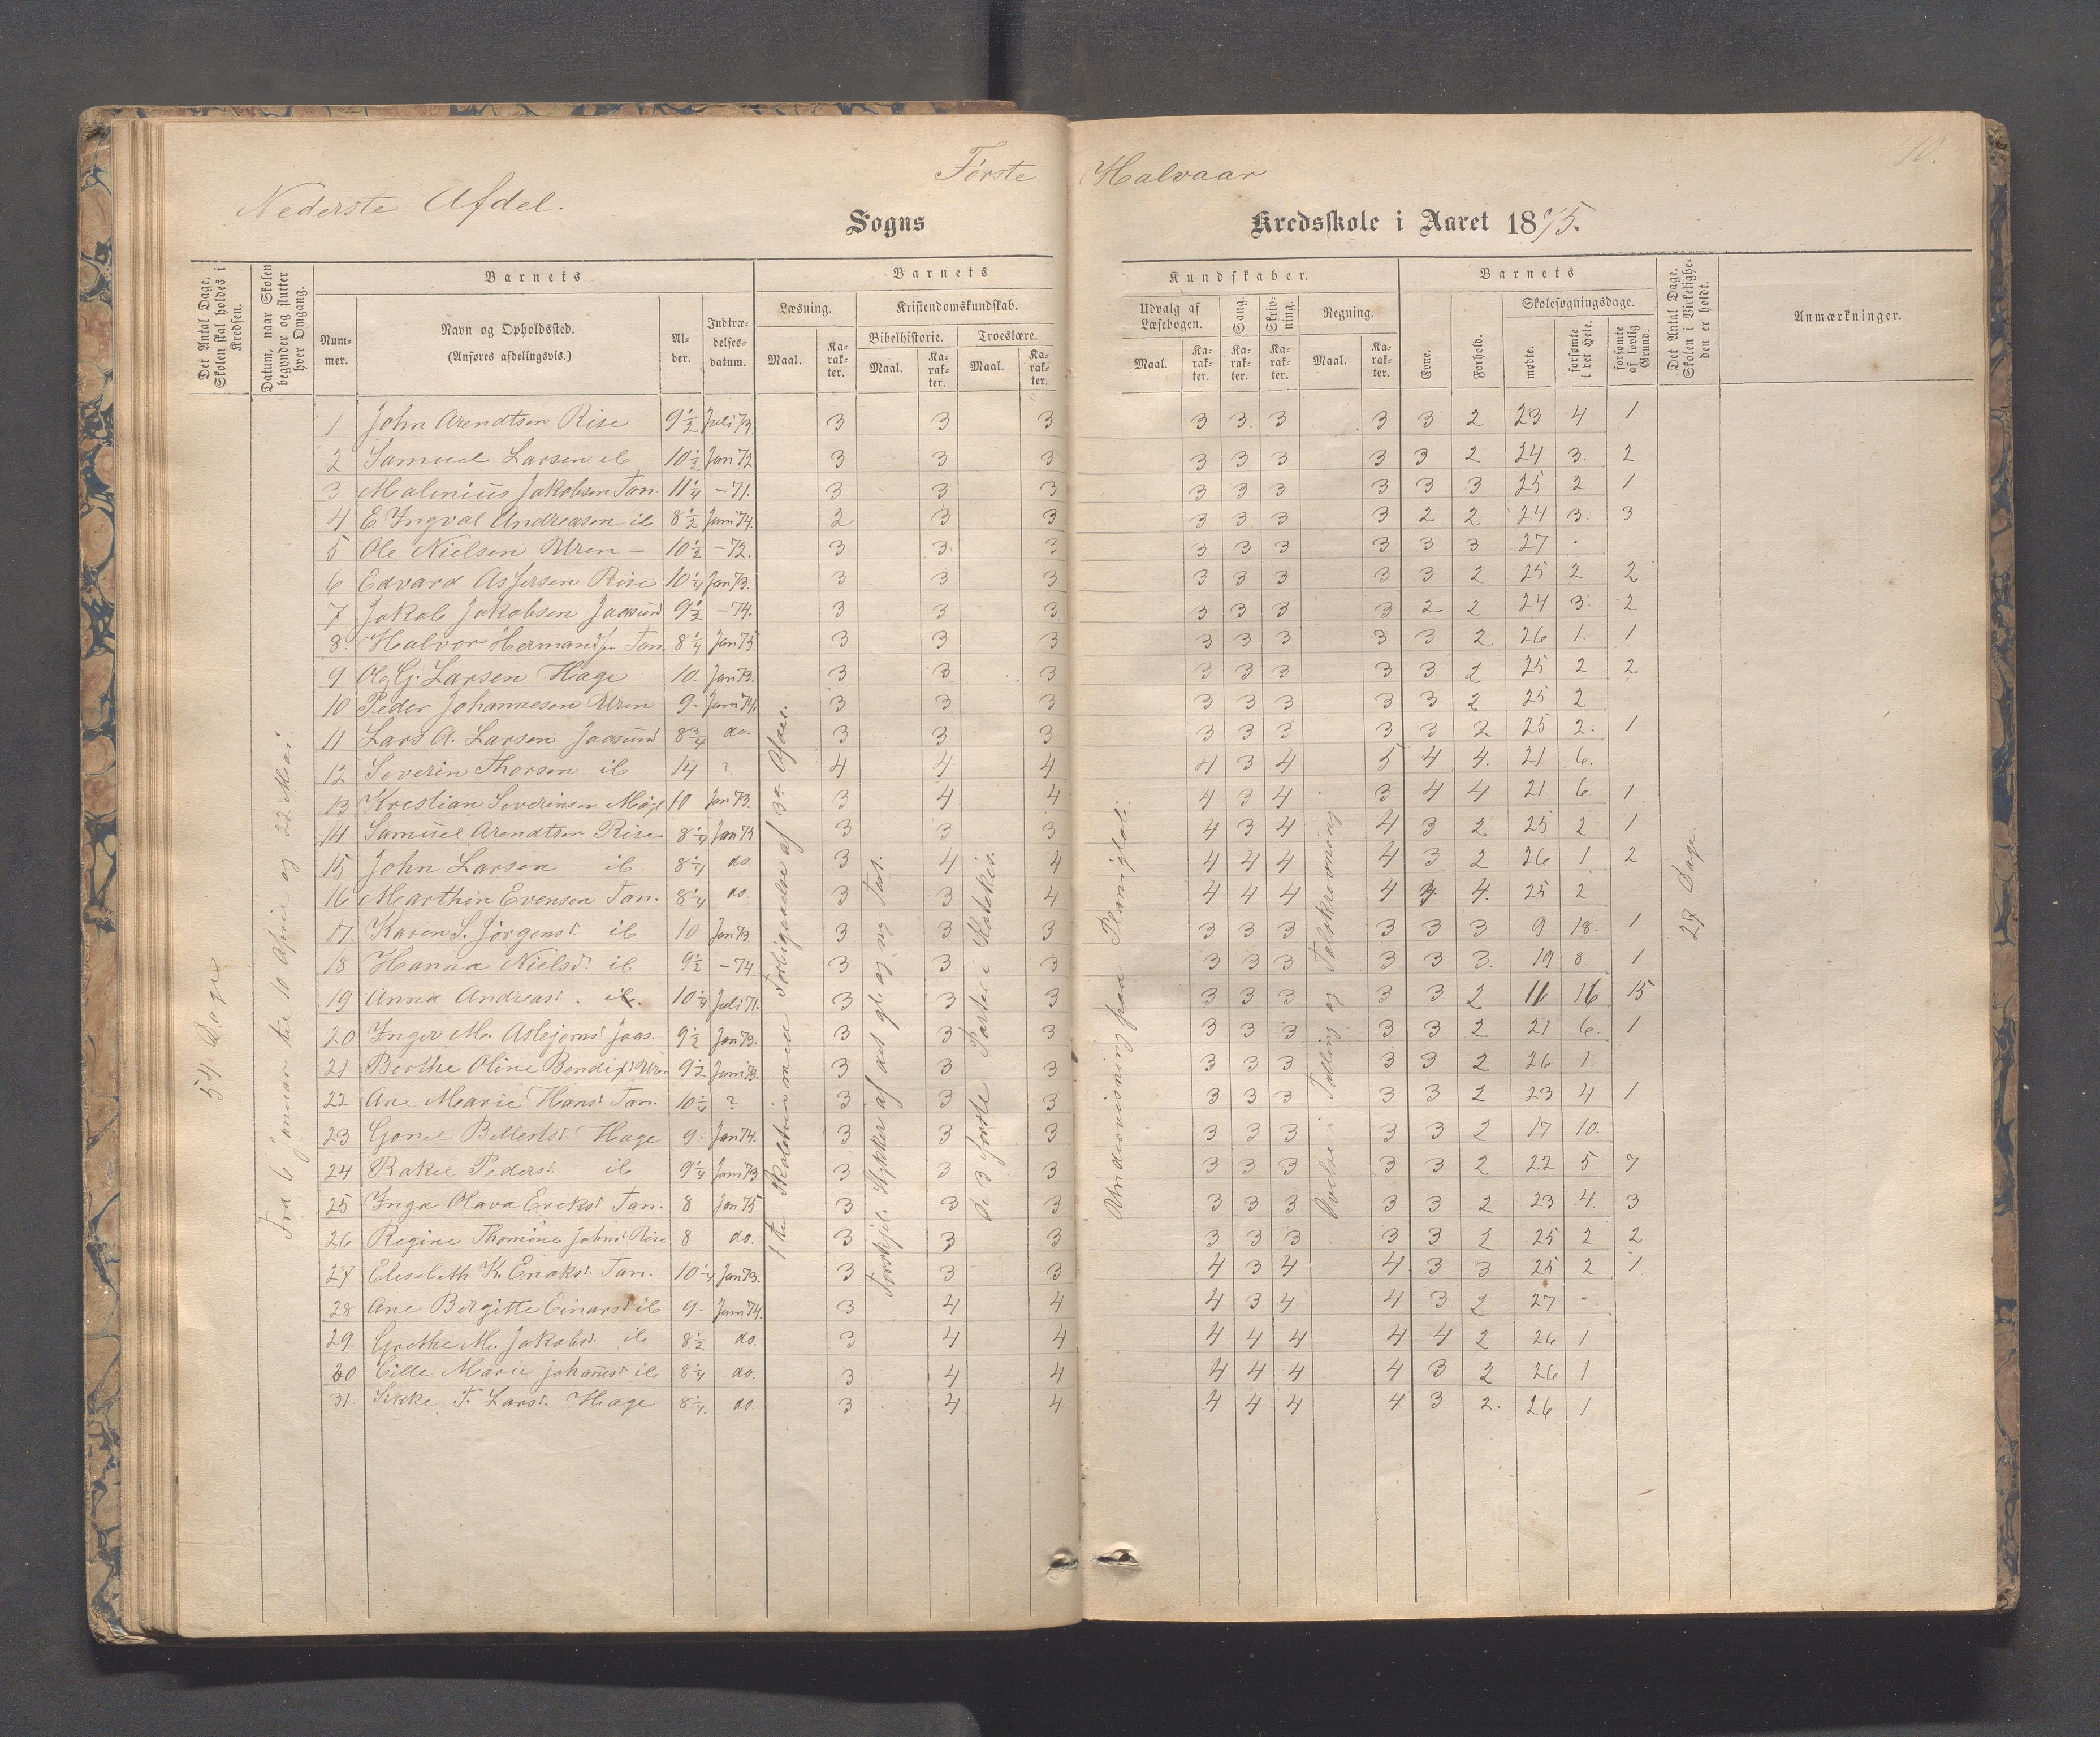 10.
Første Halvaar
Nederste Afdel.
Sogns Kredsskole i Aaret 1875.
Det Antal Dage, Skolen skal holdes i Kredsen.
Datum, naar Skolen begynder og slutter hver Omgang.
Barnets
Nummer.
Navn og Opholdssted.
(Anføres afdelingsvis.)
Alder.
Indtrædelsesdatum.
Barnets Kundskaber.
Læsning.
Kristendomskundskab.
Bibelhistorie.
Troeslære.
Udvalg af Læsebogen.
Sang.
Skrivning.
Regning.
Maal.
Karakter.
Maal.
Karakter.
Maal.
Karakter.
Maal.
Karakter.
Karakter.
Karakter.
Maal.
Karakter.
Barnets
Evne.
Forhold.
Skolesøgningsdage.
mødte.
forsømte i det Hele.
forsømte af lovlig Grund.
Det Antal Dage, Skolen i Virkeligheden er holdt.
Anmærkninger.
54 Dage
Fra 6 Januar til 10 April og 22 Mai.
1 John Arendtsen Rise 9½ Juli 73 3 3 3 3 3. 3 3 3 2 23 4 1
2 Samuel Larsen ib 10½ Jan 72 3 3 3 3 3 3 3 3 2 24 3. 2
3 Malenius Jakobsen Tan. 11¼ -71. 3 3 3 3 3 3 3 3 3 25 2 1
4 E Ingval Andreasen ib 8½ Juni 74. 2 3 3 3 3 3 3 2 2 24 3. 3
5 Ole Nielsen Uren - 10½ -72. 3 3. 3 3 3 3 3 3 3 27 .
6 Edvard Asjersen Rise 10¼ Jan 73. 3 3 3 3 3 3 3 3 2 25 2 2
7 Jakob Jakobsen Jaasund 9½ -74. 3 3 3 3 3 3 3 2 2 24 3. 2
8. Halvor Hermands. Tan. 8¼ Jan 75. 3 3 3 3 3 3 3 3 2 26 1. 1
9 O. Gj. Larsen Hage 10. Jan 73. 3 3 3 3 3 3 3 3 2 25 2 2
10 Peder Johannesen Uren 9. Juni 74. 3 3 3 3 3 3 3 3 2 25 2
11 Lars A. Larsen Jaasund 8¾ do. 3 3 3 3 3 3 3 3 2 25 2. 1
12 Severin Thorsen ib 14 ? 4 4 4 4 3 4 5 4 4. 21 6.
13 Krestian Severinsen 10 Jan 73. 3 4 4 4 3 4 3 4 4 21 6. 1
14 Samuel Arendtsen Rise 8¼ Jan 75 3 3 3 4 3 4 4 3 2 25 2 1
15 John Larsen ib 8¼ do. 3 4 4 4 4 4 4 3 2 26 1 2
16 Marthin Evensen Tan. 8¼ do. 3 3 4 4 4 4 4 4 4. 25 2
17. Karen S. Jørgensd. ib 10 Jan 73 3 3 3 3 3 3 3 3 3 9 18. 1
18 Hanna Nielsd. ib 9½ -74 3 3 3 3 3 3 3 3 3. 19 8 1
19 Anna Andreasd. ib. 10¼ Juli 71. 3 3 3 3 3 3 3 3 2 11 16 15
20 Inger M. Asbejornsd. Jaas. 9½ Jan 73. 3 3 3 3 3 3 3 3 2 21 6. 1
21 Berthe Oline Bendixsd. Uren 9½ Juni 73. 3 3 3 3 3 3 3 3 2 26 1.
22 Ane Marie Hansd. Tan. 10¼ ? 3 3 3 3 3 3 3 3 2 23 4 1
23 Gonel Bellertsd. Hage 9. Jan 74. 3 3 3 3 3 3 3 3 2 17 10.
24 Rakel Pedersd. ib 9¼ Juni 73. 3 3 3 3 3 3 3 3 2 22 5 7
25 Inga Olava Ereksd. Tan. 8 Jan 75 3 3 3 3 3 3 3 3 2 23 4. 3
26 Regine Thomine Johnsd. Rise 8 do. 3 3 3 3 3 3 3 3 2 25 2 2
27 Elisabeth K. Enoksd. Tan. 10¼ Jan 73. 3 3 3 4 3 4 4 3 3 25 2 1.
28 Ane Bergitte Einarsd. ib 9. Juni 74. 3 4 4 4 3 4 4 3 2 27 -
29. Grethe M. Jakobsd. ib 8½ do. 3 4 4 4 4 4 4 4 2 26 1
30 Cille Marie Johannesd. ib 8¼ do. 3 4 4 4 4 4 4 3 2 26 1
31. Sikke T. Larsd. Hage 8¼. do. 3 4 4 4 4 4 4 3 2. 26 1
1ste Skoletrin med Forbigaaelse af 3de Afdel.
Forskjel. Stykker af det gl. og ny Test.
de 3 første Parter i Katekis.
Undervisning paa Planiglob.
Øvelse i Tælling og Talskrivning
27 Dage.